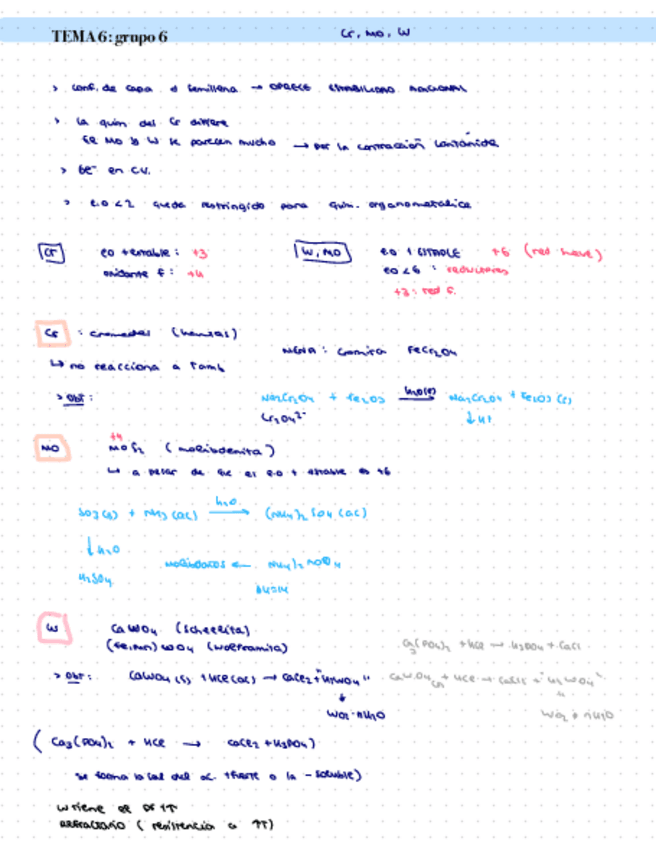 TEMA 6: grupo 6
Cr, Mo, W
> conf. de capa d semillena → OFRECE ESTABILIDAD ADICIONAL
> la quím del Cr difiere
se Mo y W se parecen mucho → por la contracción lantánida
> 6e⁻ en CV.
> e.o < 2 queda restringido para quím. organometálica
Cr eo + estable : +3
oxidante f :
W, Mo e.o + ESTABLE +6 (red suave)
eo < 6 : reductores
+3 : red f.
Cr : cromatos
MENA : cromita FeCr₂O₄
↳ no reacciona a Tamb
> obt :
Mo
MoS₂ (molibdenita)
↳ a pesar de que el e.o + estable es +6
SO₃ (g) + NH₃ (ac) → (NH₄)₂ SO₄ (ac)
↓ H₂O
H₂SO₄
molibdatos ←
W CaWO₄ (scheelita)
(Fe, Mn) WO₄ (wolframita)
Ca₃(PO₄)₂ + HCl → H₃PO₄ + CaCl
> obt : CaWO₄ (s) + HCl (ac) → CaCl₂ + "H₂WO₄"
↓
( Ca₃(PO₄)₂ + HCl → CaCl₂ + H₃PO₄ )
se forma la sal del ác. + fuerte o la - soluble)
W tiene el PF ↑↑
REFRACTARIO ( resistencia a ↑T)